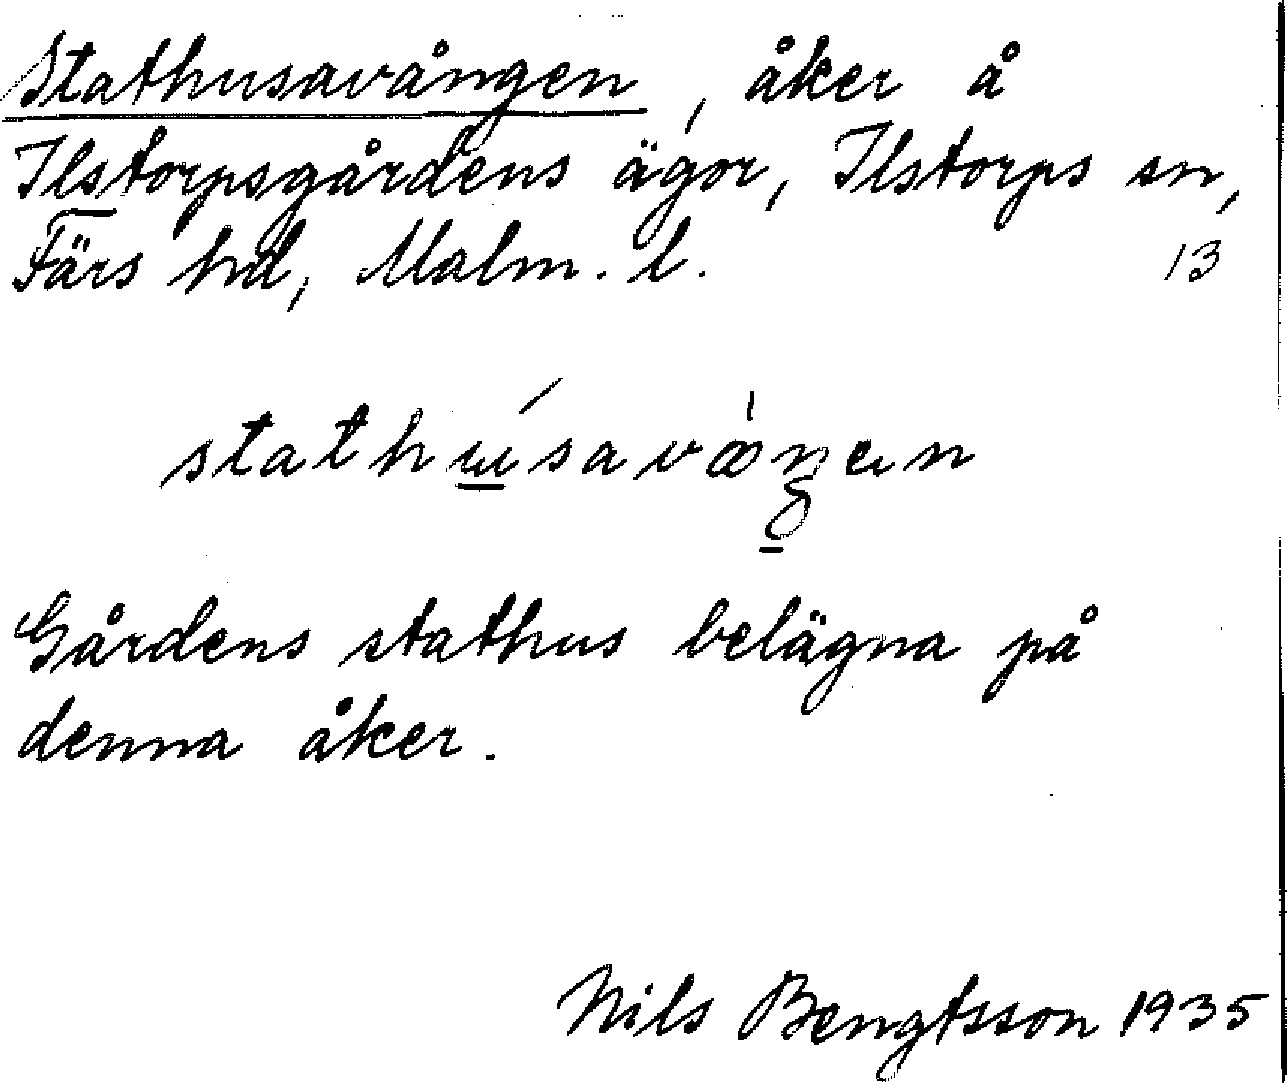 Stathusavången, åker å
Ilstorpsgårdens ägor, Ilstorps sn,
Färs hd, Malm. l.
13
Gårdens stathus belägna på
denna åker.
Nils Bengtsson 1935